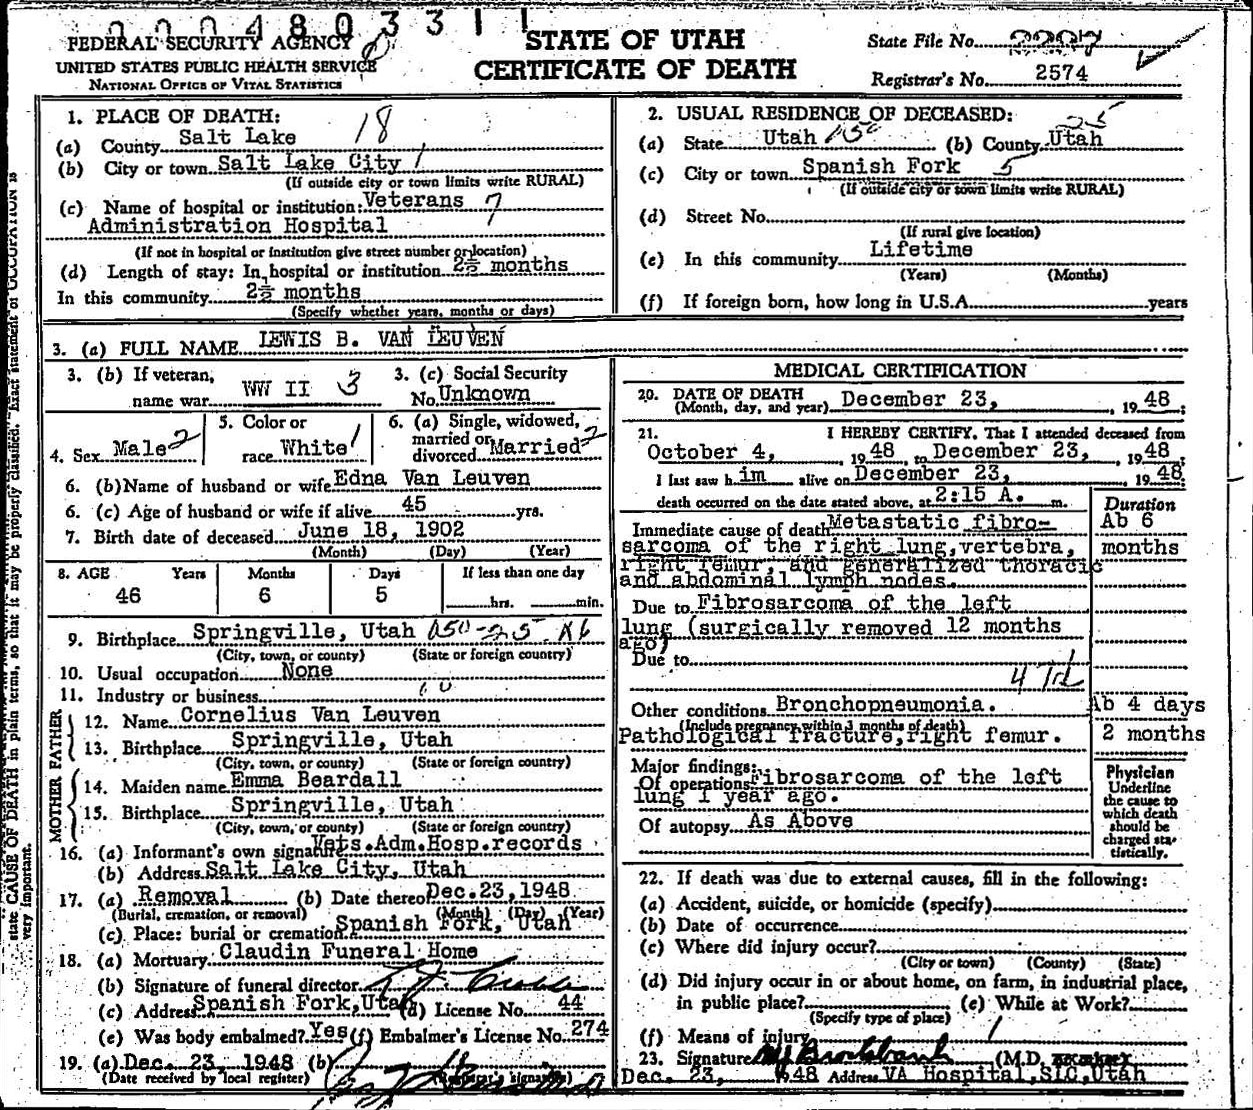 000480 3311
FEDERAL SECURITY AGENCY
UNITED STATES PUBLIC HEALTH SERVICE
NATIONAL OFFICE OF VITAL STATISTICS
STATE OF UTAH
CERTIFICATE OF DEATH
State File No.
Registrar's No. 2574
1. PLACE OF DEATH:
(a) County Salt Lake 18
(b) City or town Salt Lake City 1
(If outside city or town limits write RURAL)
(c) Name of hospital or institution: Veterans 7
Administration Hospital
(If not in hospital or institution give street number or location)
(d) Length of stay: In hospital or institution 2½ months
In this community 2½ months
(Specify whether years, months or days)
2. USUAL RESIDENCE OF DECEASED:
(a) State Utah 150 (b) County Utah 25
(c) City or town Spanish Fork 5
(If outside city or town limits write RURAL)
(d) Street No.
(If rural give location)
(e) In this community Lifetime
(Years) (Months)
(f) If foreign born, how long in U.S.A. years
3. (a) FULL NAME LEWIS B. VAN LEUVEN
3. (b) If veteran, name war WW II 3
3. (c) Social Security No. Unknown
4. Sex Male 2
5. Color or race White 1
6. (a) Single, widowed, married or divorced Married 2
6. (b) Name of husband or wife Edna Van Leuven
6. (c) Age of husband or wife if alive 45 yrs.
7. Birth date of deceased June 18, 1902
(Month) (Day) (Year)
8. AGE Years Months Days If less than one day
46 6 5 hrs. min.
9. Birthplace Springville, Utah 150-25
(City, town, or county) (State or foreign country)
10. Usual occupation None
11. Industry or business
FATHER
12. Name Cornelius Van Leuven
13. Birthplace Springville, Utah
(City, town, or county) (State or foreign country)
MOTHER
14. Maiden name Emma Beardall
15. Birthplace Springville, Utah
(City, town, or county) (State or foreign country)
16. (a) Informant's own signature Vets.Adm.Hosp.records
(b) Address Salt Lake City, Utah
17. (a) Removal (b) Date thereof Dec.23,1948
(Burial, cremation, or removal) (Month) (Day) (Year)
(c) Place: burial or cremation Spanish Fork, Utah
18. (a) Mortuary Claudin Funeral Home
(b) Signature of funeral director
(c) Address Spanish Fork,Utah (d) License No. 44
(e) Was body embalmed? Yes (f) Embalmer's License No. 274
19. (a) Dec. 23, 1948 (b)
(Date received by local register) (Registrar's signature)
MEDICAL CERTIFICATION
20. DATE OF DEATH
(Month, day, and year) December 23, , 1948;
21. I HEREBY CERTIFY, That I attended deceased from
October 4, , 1948, to December 23, , 1948;
I last saw him alive on December 23, , 1948;
death occurred on the date stated above, at 2:15 A. m.
Duration
Immediate cause of death Metastatic fibro- Ab 6
sarcoma of the right lung,vertebra, months
right femur, and generalized thoracic
and abdominal lymph nodes.
Due to Fibrosarcoma of the left
lung (surgically removed 12 months
ago)
Due to
Other conditions Bronchopneumonia. Ab 4 days
(Include pregnancy within 3 months of death)
Pathological fracture,right femur. 2 months
Major findings:
Of operations Fibrosarcoma of the left
lung 1 year ago.
Of autopsy As Above
Physician
Underline
the cause to
which death
should be
charged sta-
tistically.
22. If death was due to external causes, fill in the following:
(a) Accident, suicide, or homicide (specify)
(b) Date of occurrence
(c) Where did injury occur?
(City or town) (County) (State)
(d) Did injury occur in or about home, on farm, in industrial place,
in public place? (e) While at Work?
(Specify type of place)
(f) Means of injury
23. Signature Brockbank (M.D.
Dec. 23, 1948 Address VA Hospital,SLC,Utah
state CAUSE OF DEATH in plain terms, so that it may be properly classified. Exact statement of OCCUPATION is
very important.